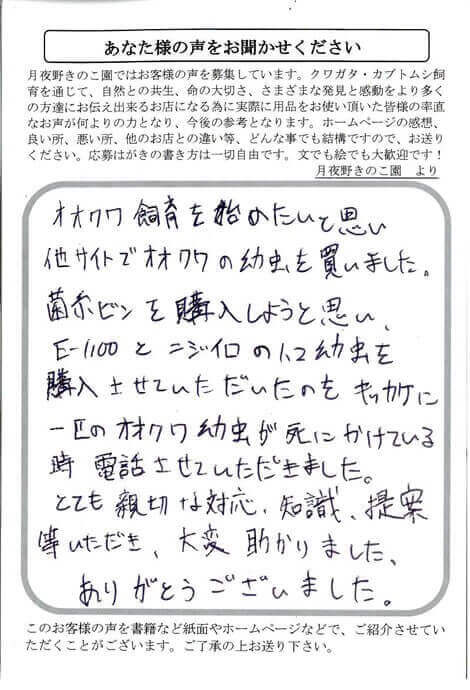 あなた様の声をお聞かせください
月夜野きのこ園ではお客様の声を募集しています。クワガタ・カブトムシ飼
育を通じて、自然との共生、命の大切さ、さまざまな発見と感動をより多く
の方達にお伝え出来るお店になる為に実際に用品をお使い頂いた皆様の率直
なお声が何よりの力となり、今後の参考となります。ホームページの感想、
良い所、悪い所、他のお店との違い等、どんな事でも結構ですので、お送り
ください。応募はがきの書き方は一切自由です。文でも絵でも大歓迎です！
月夜野きのこ園 より
オオクワ飼育を始めたいと思い
他サイトでオオクワの幼虫を買いました。
菌糸ビンを購入しようと思い、
E-1100とニジイロの 幼虫を
購入させていただいたのをキッカケに
一匹のオオクワ幼虫が死にかけている
時電話させていただきました。
とても親切な対応、知識、提案
等いただき、大変助かりました、
ありがとうございました。
このお客様の声を書籍など紙面やホームページなどで、ご紹介させてい
ただくことがございます。ご了承の上お送り下さい。